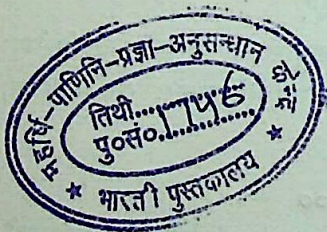 महर्षि-पाणिनि-प्रज्ञा-अनुसन्धान केन्द्र
तिथी..............
पु०सं०.1746
* भारती पुस्तकालय *